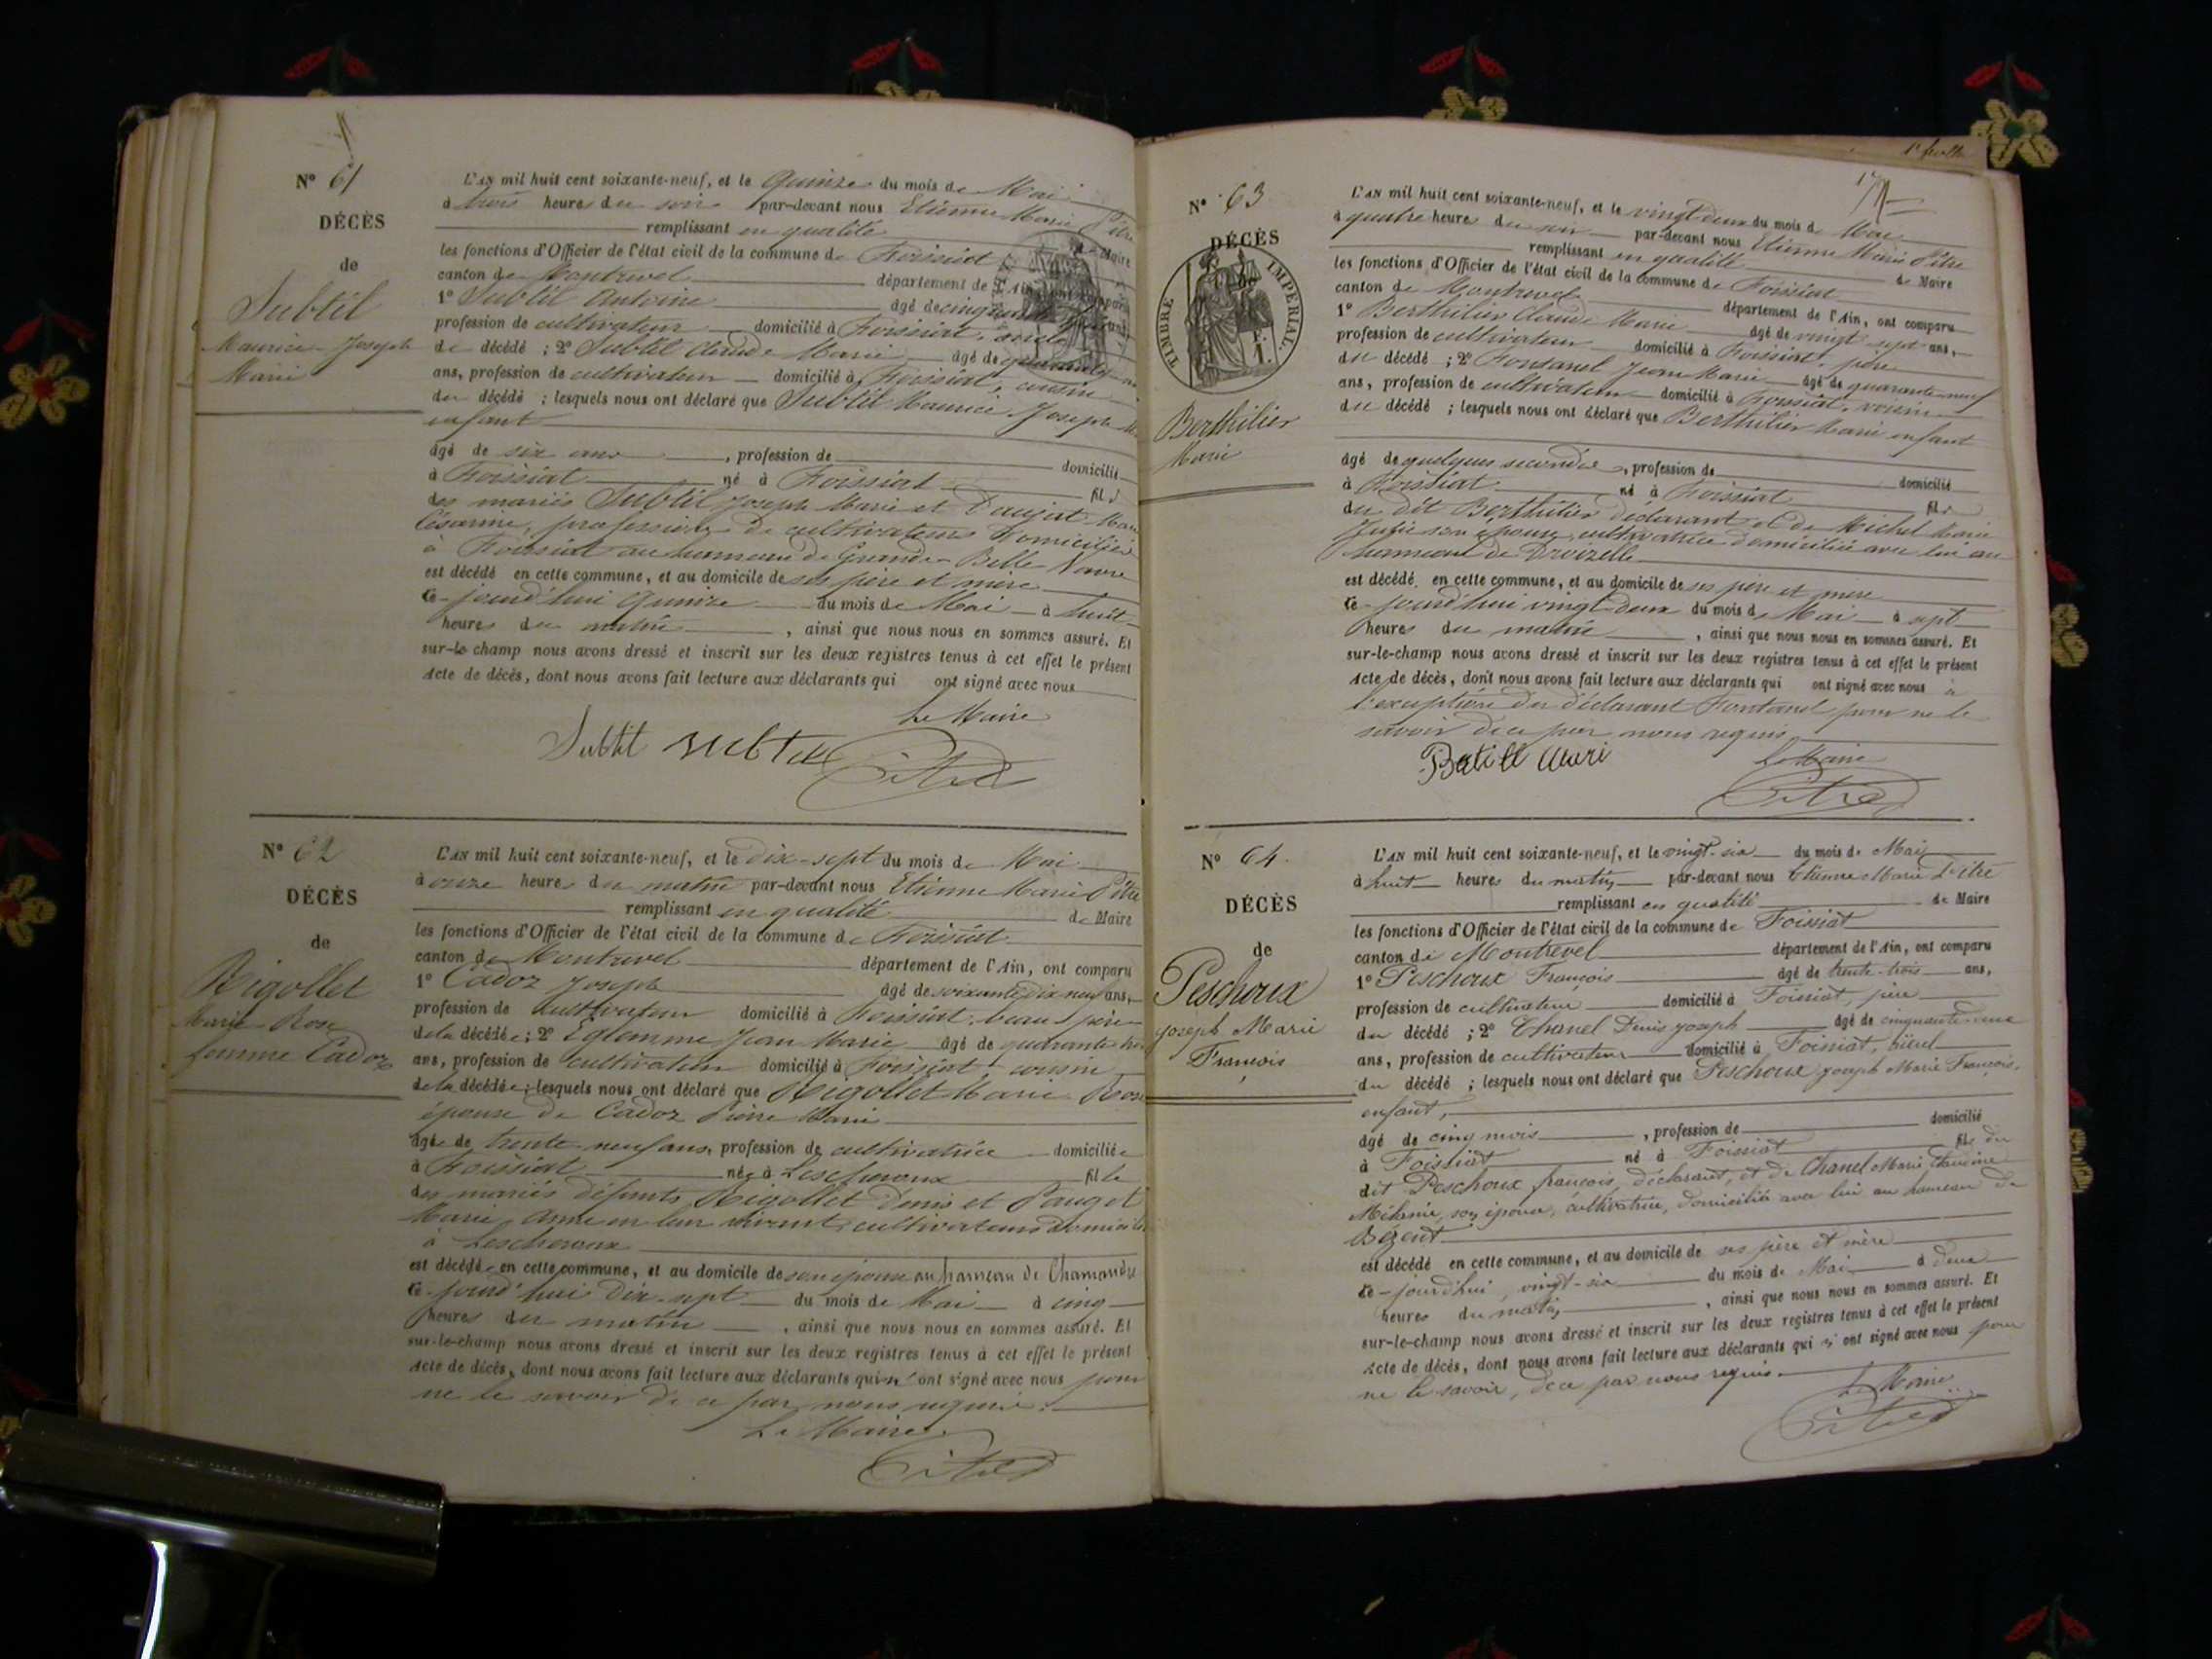 N° 61
DÉCÈS
de
Subtil
Maurice Joseph
Marie
L'AN mil huit cent soixante-neuf, et le quinze du mois de Mai
à trois heures du soir par-devant nous Etienne Marie Pitre
remplissant en qualité de Maire
les fonctions d'Officier de l'état civil de la commune de Foissiat
canton de Montrevel département de l'Ain, ont comparu
1° Subtil Antoine âgé de cinquante
profession de cultivateur domicilié à Foissiat, oncle
du décédé ; 2° Subtil Claude Marie âgé de quarante
ans, profession de cultivateur domicilié à Foissiat, cousin
du décédé ; lesquels nous ont déclaré que Subtil Maurice Joseph
enfant
âgé de six ans , profession de domicilié
à Foissiat né à Foissiat fils
des mariés Subtil Joseph Marie et Daujat Marie
Césarine, profession de cultivateurs domiciliés
à Foissiat au hameau de Grande Belle Vavre
est décédé en cette commune, et au domicile de ses père et mère
ce-jourd'hui quinze du mois de Mai à huit
heures du matin , ainsi que nous nous en sommes assuré. Et
sur-le champ nous avons dressé et inscrit sur les deux registres tenus à cet effet le présent
Acte de décès, dont nous avons fait lecture aux déclarants qui ont signé avec nous
Le Maire
Subtil subtil Pitre
N° 62
DÉCÈS
de
Rigollet
Marie Rose
femme Cadoz
L'AN mil huit cent soixante-neuf, et le dix-sept du mois de Mai
à onze heures du matin par-devant nous Etienne Marie Pitre
remplissant en qualité de Maire
les fonctions d'Officier de l'état civil de la commune de Foissiat
canton de Montrevel département de l'Ain, ont comparu
1° Cadoz Joseph âgé de soixante dix neuf ans,
profession de cultivateur domicilié à Foissiat, beau père
de la décédée ; 2° Eglomme Jean Marie âgé de quarante
ans, profession de cultivateur domicilié à Foissiat cousin
de la décédée ; lesquels nous ont déclaré que Rigollet Marie Rose
épouse de Cadoz Pierre Marie
âgée de trente neuf ans, profession de cultivatrice domiciliée
à Foissiat née à Lescheroux fille
des mariés défunts Rigollet Denis et Pauget
Marie Anne en leur vivant cultivateurs domiciliés
à Lescheroux
est décédée en cette commune, et au domicile de son époux au hameau de Chamandre
ce-jourd'hui dix-sept du mois de Mai à cinq
heures du matin , ainsi que nous nous en sommes assuré. Et
sur-le-champ nous avons dressé et inscrit sur les deux registres tenus à cet effet le présent
Acte de décès, dont nous avons fait lecture aux déclarants qui n'ont signé avec nous pour
ne le savoir de ce par nous requis.
Le Maire
Pitre
N° 63
DÉCÈS
de
TIMBRE IMPÉRIAL.
F.
1.
Berthilier
Marie
L'AN mil huit cent soixante-neuf, et le vingt deux du mois de Mai
à quatre heures du soir par-devant nous Etienne Marie Pitre
remplissant en qualité de Maire
les fonctions d'Officier de l'état civil de la commune de Foissiat
canton de Montrevel département de l'Ain, ont comparu
1° Berthilier Claude Marie âgé de vingt sept ans,
profession de cultivateur domicilié à Foissiat, père
du décédé ; 2° Fontanel Jean Marie âgé de quarante-neuf
ans, profession de cultivateur domicilié à Foissiat, voisin
du décédé ; lesquels nous ont déclaré que Berthilier Marie enfant
âgé de quelques secondes , profession de domicilié
à Foissiat né à Foissiat fils
du dit Berthilier déclarant et de Michel Marie
Julie son épouse, cultivatrice domiciliée avec lui au
hameau de Droizelle
est décédé en cette commune, et au domicile de ses père et mère
ce-jourd'hui vingt deux du mois de Mai à sept
heures du matin , ainsi que nous nous en sommes assuré. Et
sur-le-champ nous avons dressé et inscrit sur les deux registres tenus à cet effet le présent
Acte de décès, dont nous avons fait lecture aux déclarants qui ont signé avec nous à
l'exception du déclarant Fontanel pour ne le
savoir de ce par nous requis
Le Maire
Pitre
N° 64.
DÉCÈS
de
Peschoux
Joseph Marie
François
L'AN mil huit cent soixante-neuf, et le vingt-six du mois de Mai
à huit heures du matin par-devant nous Etienne Marie Pitre
remplissant en qualité de Maire
les fonctions d'Officier de l'état civil de la commune de Foissiat
canton de Montrevel département de l'Ain, ont comparu
1° Peschoux François âgé de trente-trois ans,
profession de cultivateur domicilié à Foissiat, père
du décédé ; 2° Chanel Denis Joseph âgé de cinquante-
ans, profession de cultivateur domicilié à Foissiat,
du décédé ; lesquels nous ont déclaré que Peschoux Joseph Marie François,
enfant,
âgé de cinq mois , profession de domicilié
à Foissiat né à Foissiat fils du
dit Peschoux françois, déclarant, et de Chanel Marie
Mélanie, son épouse, cultivatrice, domiciliée avec lui au hameau de
Bézent
est décédé en cette commune, et au domicile de ses père et mère
ce-jourd'hui, vingt-six du mois de Mai à deux
heures du matin , ainsi que nous nous en sommes assuré. Et
sur-le-champ nous avons dressé et inscrit sur les deux registres tenus à cet effet le présent
Acte de décès, dont nous avons fait lecture aux déclarants qui n'ont signé avec nous pour
ne le savoir, de ce par nous requis.
Le Maire
Pitre